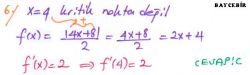 BAYCEBİR
6/ x=4 kritik nokta değil
f(x) = |4x+8|/2 = 4x+8/2 = 2x+4
f'(x)=2 ⇒ f'(4)=2 CEVAP:C